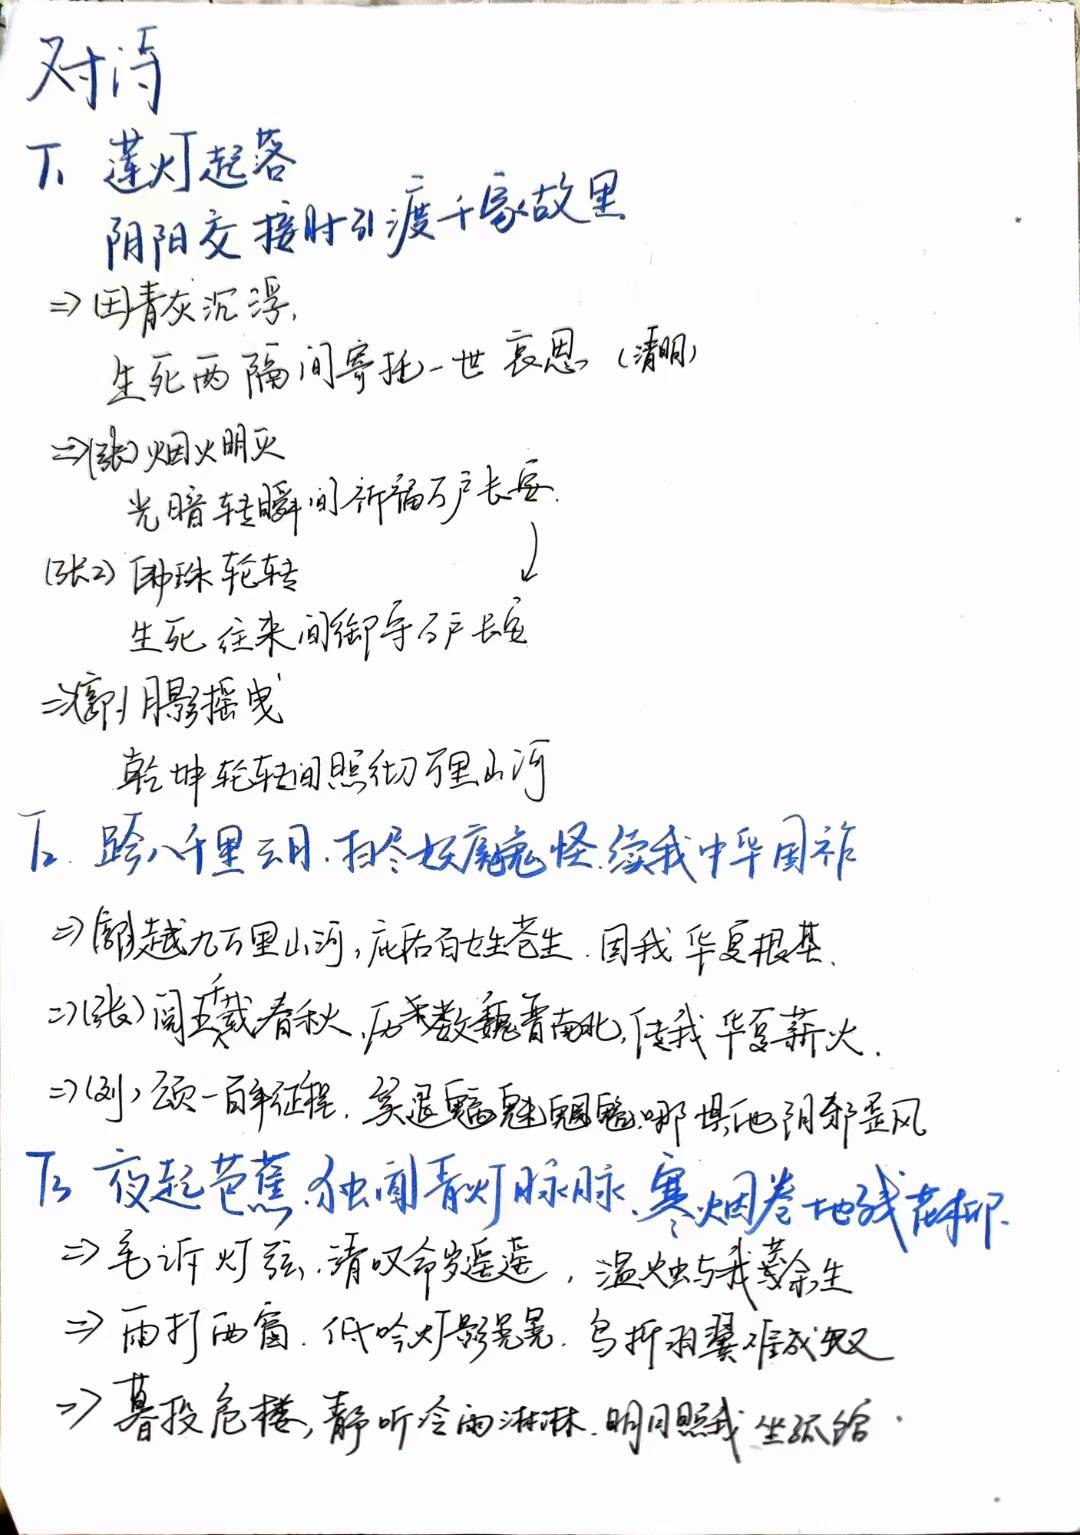 对诗
T1 莲灯起落
阴阳交接时引渡千家故里
⇒(田)青灰沉浮,
生死两隔间寄托一世哀思 (清明)
⇒(张)烟火明灭
光暗转瞬间祈福万户长安.
(张2) 佛珠轮转
生死往来间御守万户长安
⇒(郭)月影摇曳
乾坤轮转间照彻万里山河
T2. 跨八千里云月.扫尽妖魔鬼怪.续我中华国祚
⇒(郭)越九万里山河,庇佑百姓苍生.固我华夏根基.
⇒(张)阅千载春秋,历数魏晋南北,传我华夏薪火.
⇒(刘)顾一百年征程.笑退魑魅魍魉.哪惧他阴邪歪风
T3 夜起芭蕉.独闻青灯脉脉.寒烟卷地残花柳.
⇒ 毛诉灯弦.请叹命岁遥遥,温烛与我葬余生
⇒ 雨打西窗.低吟灯影晃晃.鸟折羽翼难成双
⇒ 暮投危楼,静听冷雨淋淋.明月照我坐孤舍.